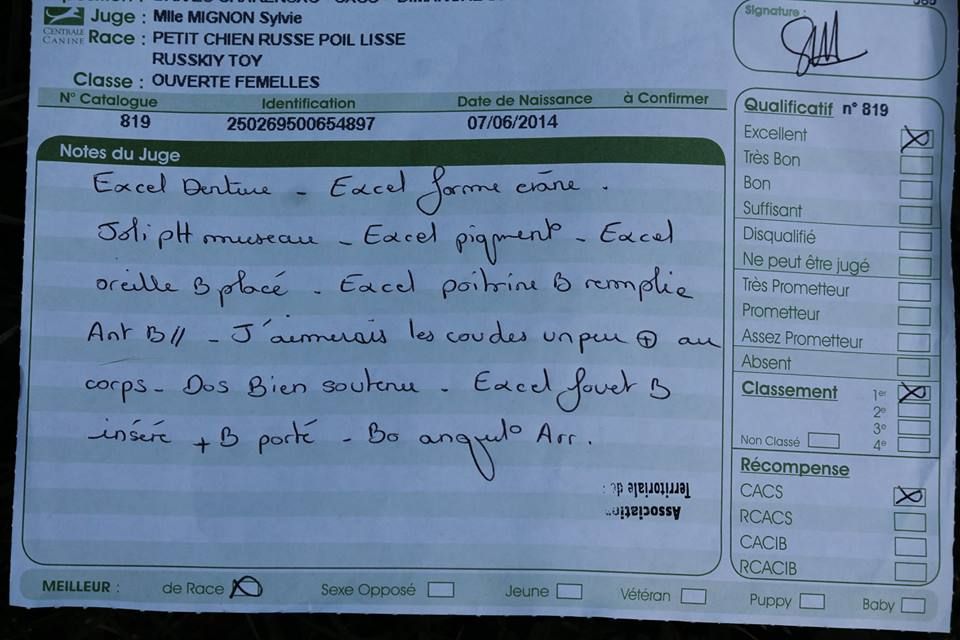 Juge : Mlle MIGNON Sylvie
CENTRALE CANINE
Race : PETIT CHIEN RUSSE POIL LISSE
RUSSKIY TOY
Classe : OUVERTE FEMELLES
N° Catalogue Identification Date de Naissance à Confirmer
819 250269500654897 07/06/2014
Notes du Juge
Excel Denture - Excel forme crâne.
Joli ptt museau - Excel pigment° - Excel
oreille B placé - Excel poitrine B remplie
Ant B// - J'aimerais les coudes un peu + au
corps - Dos Bien soutenu - Excel fouet B
inséré + B porté - Bo angul° Arr.
Association
Territoriale de :
Signature :
Qualificatif n° 819
Excellent
Très Bon
Bon
Suffisant
Disqualifié
Ne peut être jugé
Très Prometteur
Prometteur
Assez Prometteur
Absent
Classement 1er
2e
3e
Non Classé 4e
Récompense
CACS
RCACS
CACIB
RCACIB
MEILLEUR : de Race Sexe Opposé Jeune Vétéran Puppy Baby